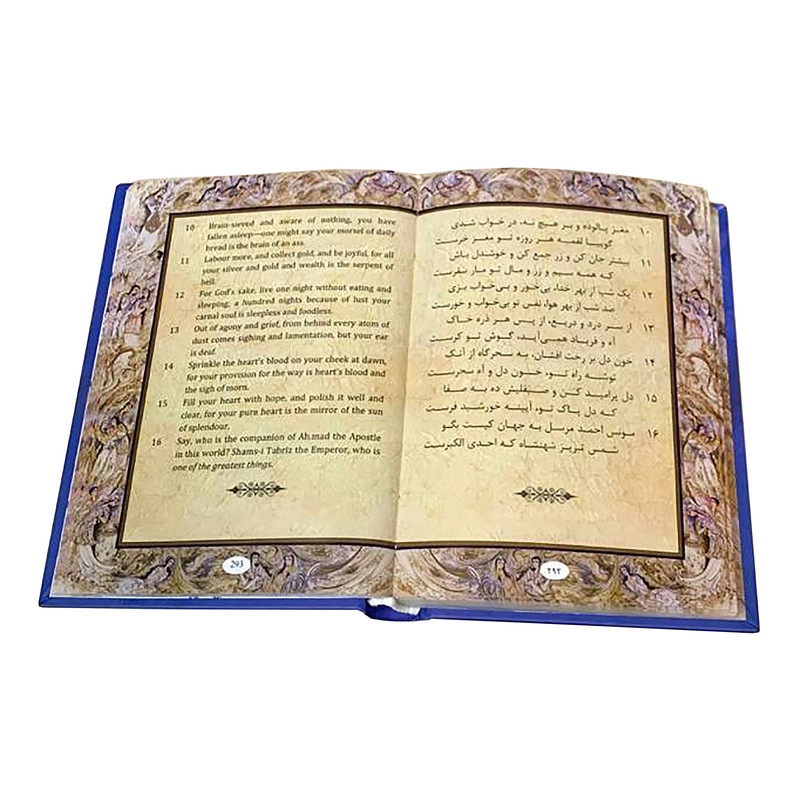 10 Brain-sieved and aware of nothing, you have
fallen asleep—one might say your morsel of daily
bread is the brain of an ass.
11 Labour more, and collect gold, and be joyful, for all
your silver and gold and wealth is the serpent of
hell.
12 For God's sake, live one night without eating and
sleeping, a hundred nights because of lust your
carnal soul is sleepless and foodless.
13 Out of agony and grief, from behind every atom of
dust comes sighing and lamentation, but your ear
is deaf.
14 Sprinkle the heart's blood on your cheek at dawn,
for your provision for the way is heart's blood and
the sigh of morn.
15 Fill your heart with hope, and polish it well and
clear, for your pure heart is the mirror of the sun
of splendour.
16 Say, who is the companion of Aḥmad the Apostle
in this world? Shams-i Tabrīz the Emperor, who is
one of the greatest things.
293
۱۰ مغز پالوده و بر هیچ نه، در خواب شدی
گوییا لقمه هر روزه تو مغز خرست
۱۱ بیشتر جان کن و زر جمع کن و خوشدل باش
که همه سیم و زر و مال تو مار سقرست
۱۲ یک شب از بهر خدا، بی‌خور و بی‌خواب بزی
صد شب از بهر هوا، نفس تو بی‌خواب و خورست
۱۳ از سر درد و دریغ، از پس هر ذره خاک
آه و فریاد همی‌آید، گوش تو کرست
۱۴ خون دل بر رخت افشان، به سحرگاه از آنک
توشه راه تو، خون دل و آه سحرست
۱۵ دل پرامید کن و صیقلیش ده به صفا
که دل پاک تو، آیینه خورشید فرست
۱۶ مونس احمد مرسل به جهان کیست بگو
شمس تبریز شهنشاه که احدی الکبرست
۲۹۲